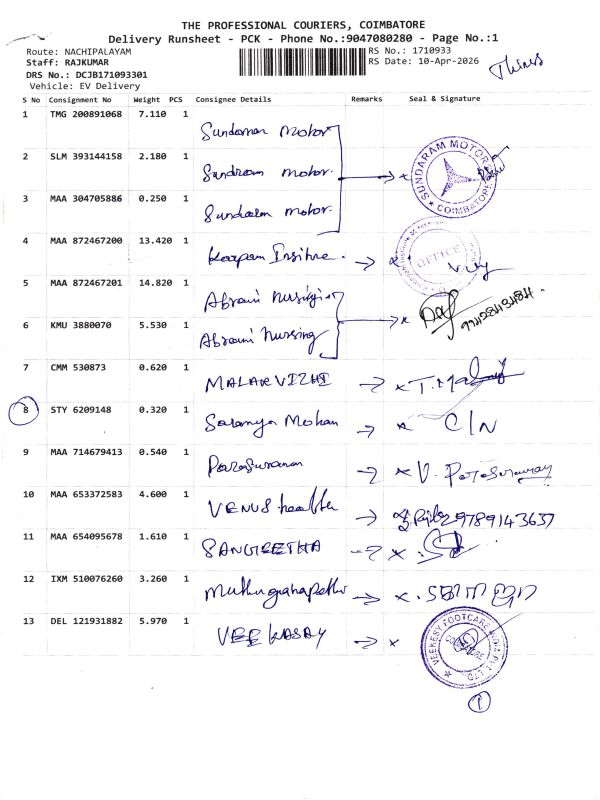 THE PROFESSIONAL COURIERS, COIMBATORE
Delivery Runsheet - PCK - Phone No.:9047080280 - Page No.:1
Route: NACHIPALAYAM
RS No.: 1710933
Staff: RAJKUMAR
RS Date: 10-Apr-2026
DRS No.: DCJB171093301
Vehicle: EV Delivery
S No Consignment No Weight PCS Consignee Details Remarks Seal & Signature
1 TMG 200891068 7.110 1 Sundaram Motor
2 SLM 393144158 2.180 1 Sundram motor.
SUNDARAM MOTORS
COIMBATORE
3 MAA 304705886 0.250 1 Sundaram motor.
4 MAA 872467200 13.420 1
OFFICE
5 MAA 872467201 14.820 1 Abrami Nursing
6 KMU 3880070 5.530 1 Abrami Nursing
7 CMM 530873 0.620 1 MALARVIZHI
8 STY 6209148 0.320 1 Saranya Mohan C/N
9 MAA 714679413 0.540 1 Parasuraman V. Parasuraman
10 MAA 653372583 4.600 1 VENUS health 9789143637
11 MAA 654095678 1.610 1 SANGEETHA
12 IXM 510076260 3.260 1
13 DEL 121931882 5.970 1 VEEKASAY
VEEKESY FOOTCARE INDIA PVT LTD.
1